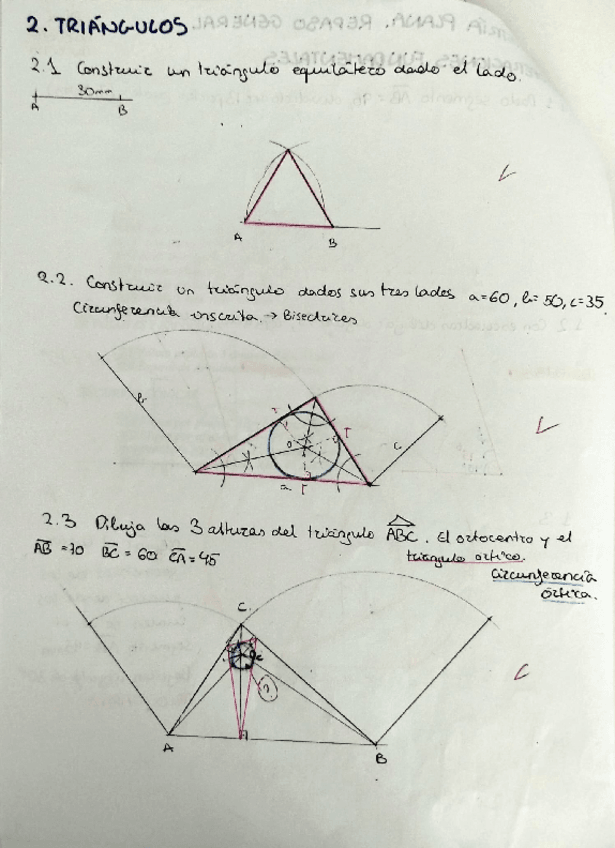 2. TRIÁNGULOS
2.1 Construir un triángulo equilátero dado el lado.
30mm
A B
A B
2.2. Construir un triángulo dados sus tres lados a=60, b=50, c=35.
Circunferencia inscrita → Bisectrices
b
c
T
T
O
a T
2.3 Dibuja las 3 alturas del triángulo ABC. El ortocentro y el
AB = 70 BC = 60 CA = 45 triángulo órtico.
Circunferencia
órtica.
C
?
A B